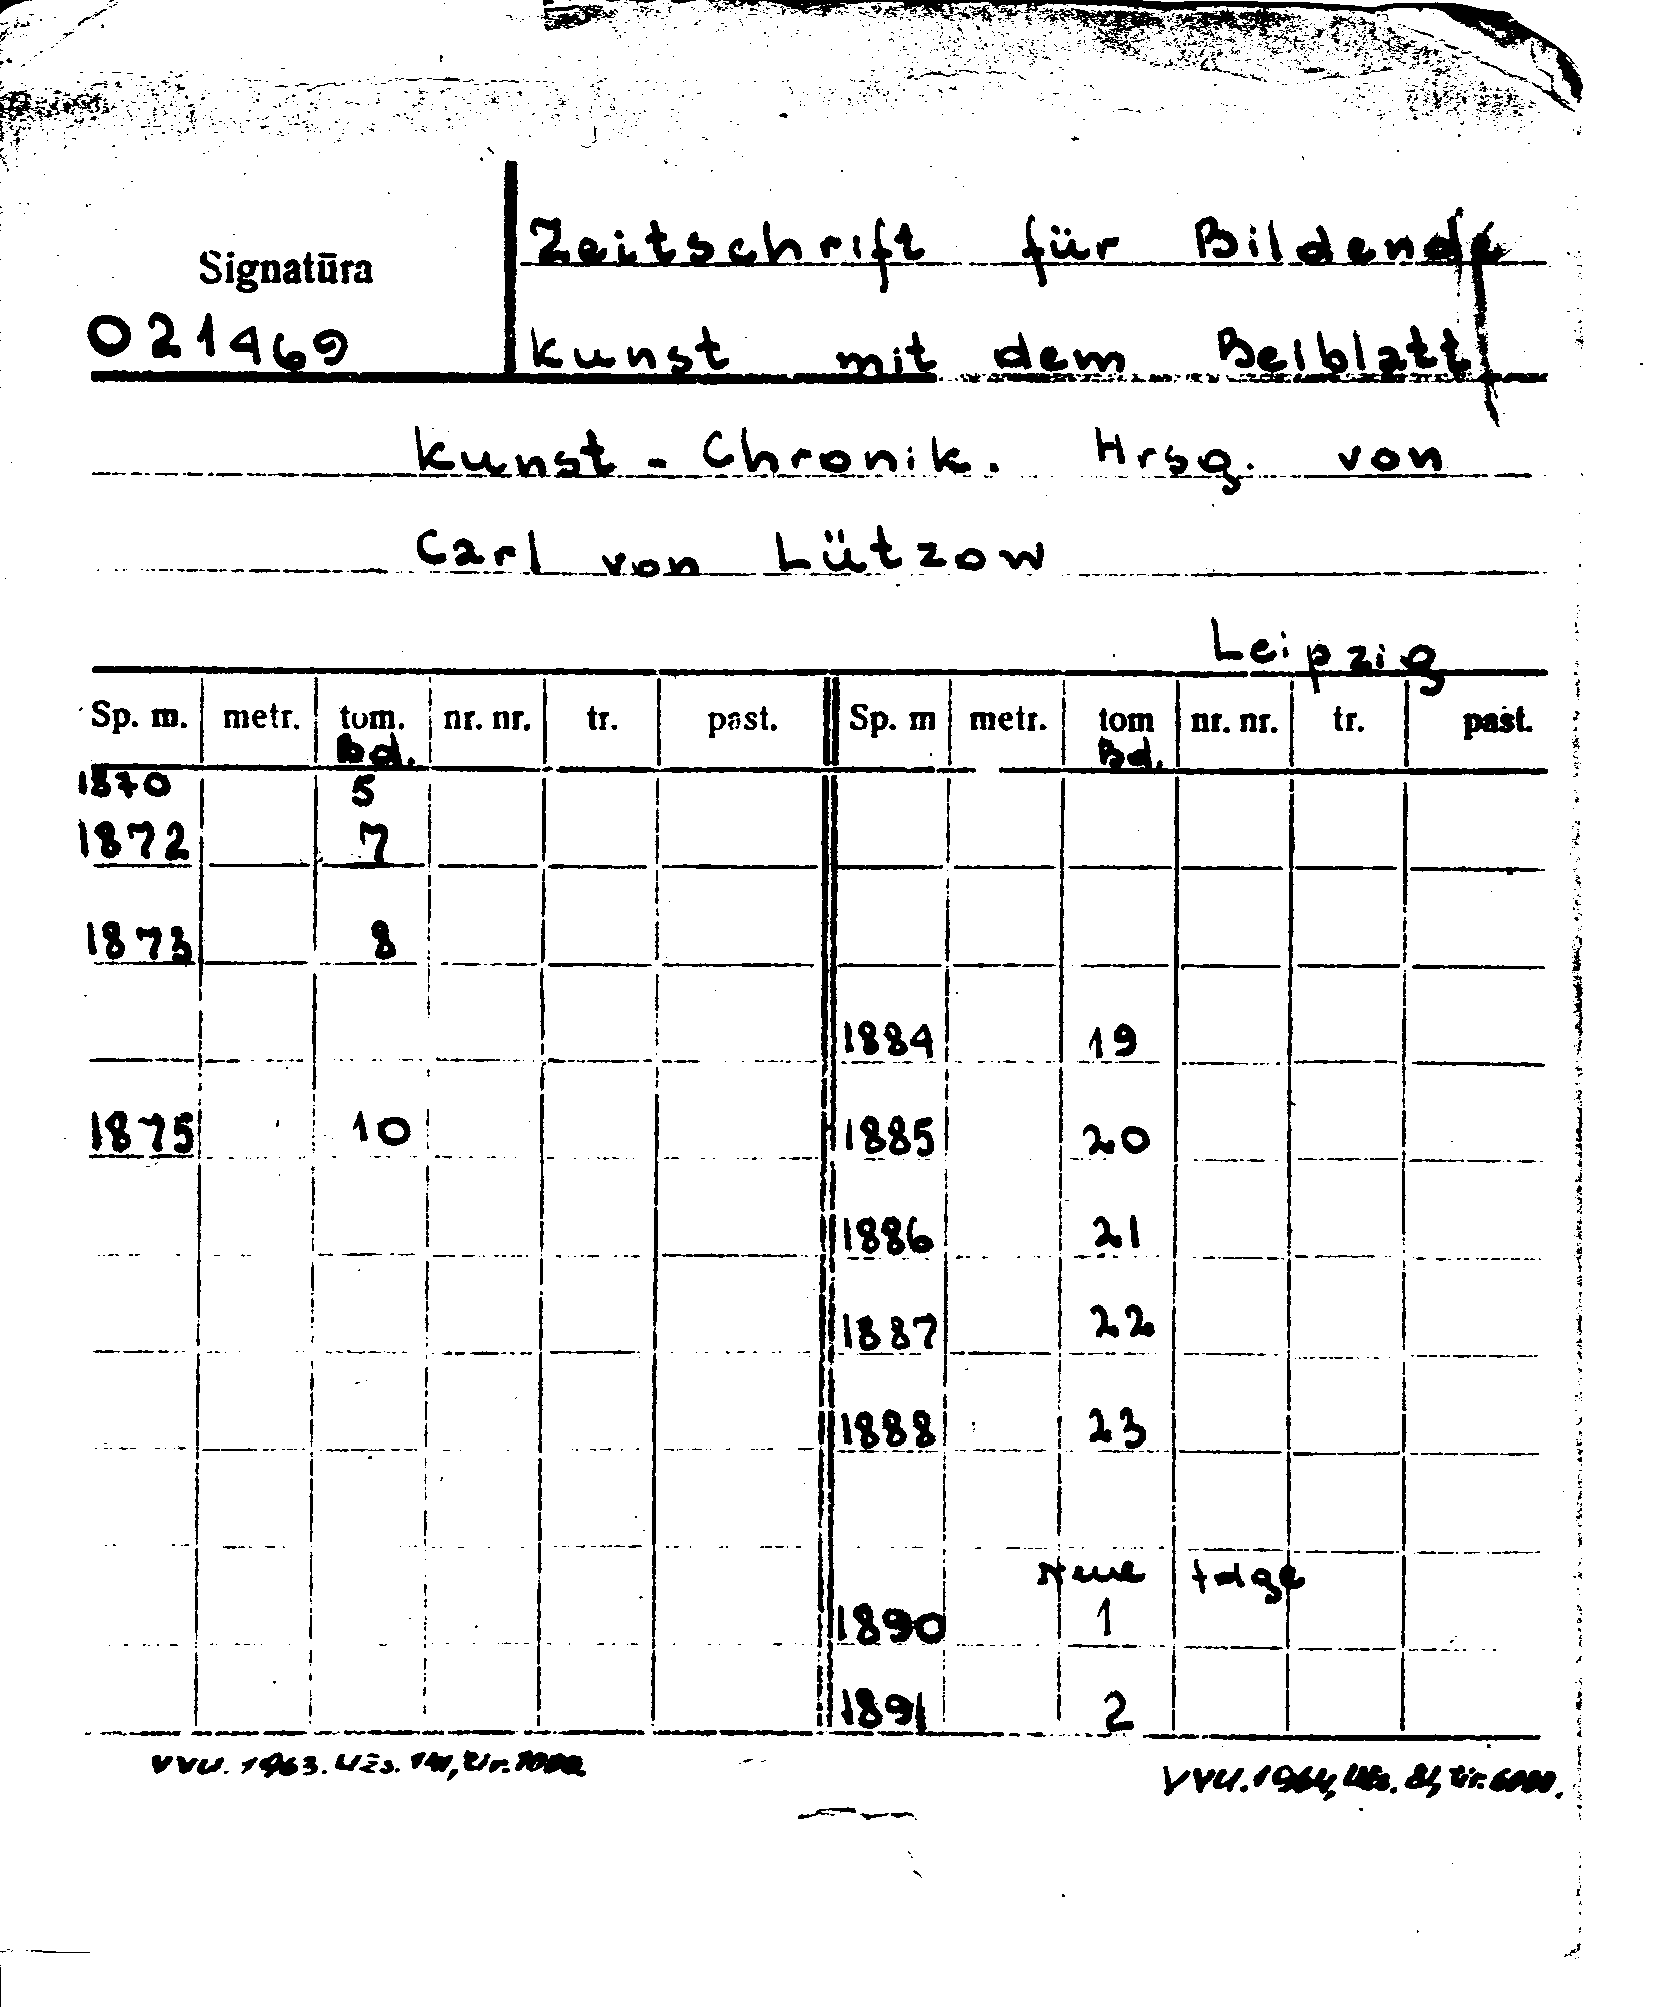 Signatūra
021469
Zeitschrift für Bildende
Kunst mit dem Beiblatt
Kunst - Chronik. Hrsg. von
Carl von Lützow
Leipzig
Sp. m. metr. tom. nr. nr. tr. past. Sp. m metr. tom nr. nr. tr. past.
Bd. Bd.
1870 5
1872 7
1873 8
1884 19
1875 10 1885 20
1886 21
1887 22
1888 23
Neue Folge
1890 1
1891 2
VVU. 1963. Užs. tir. 1000
VVU. 1964, Užs. tir. 6000.